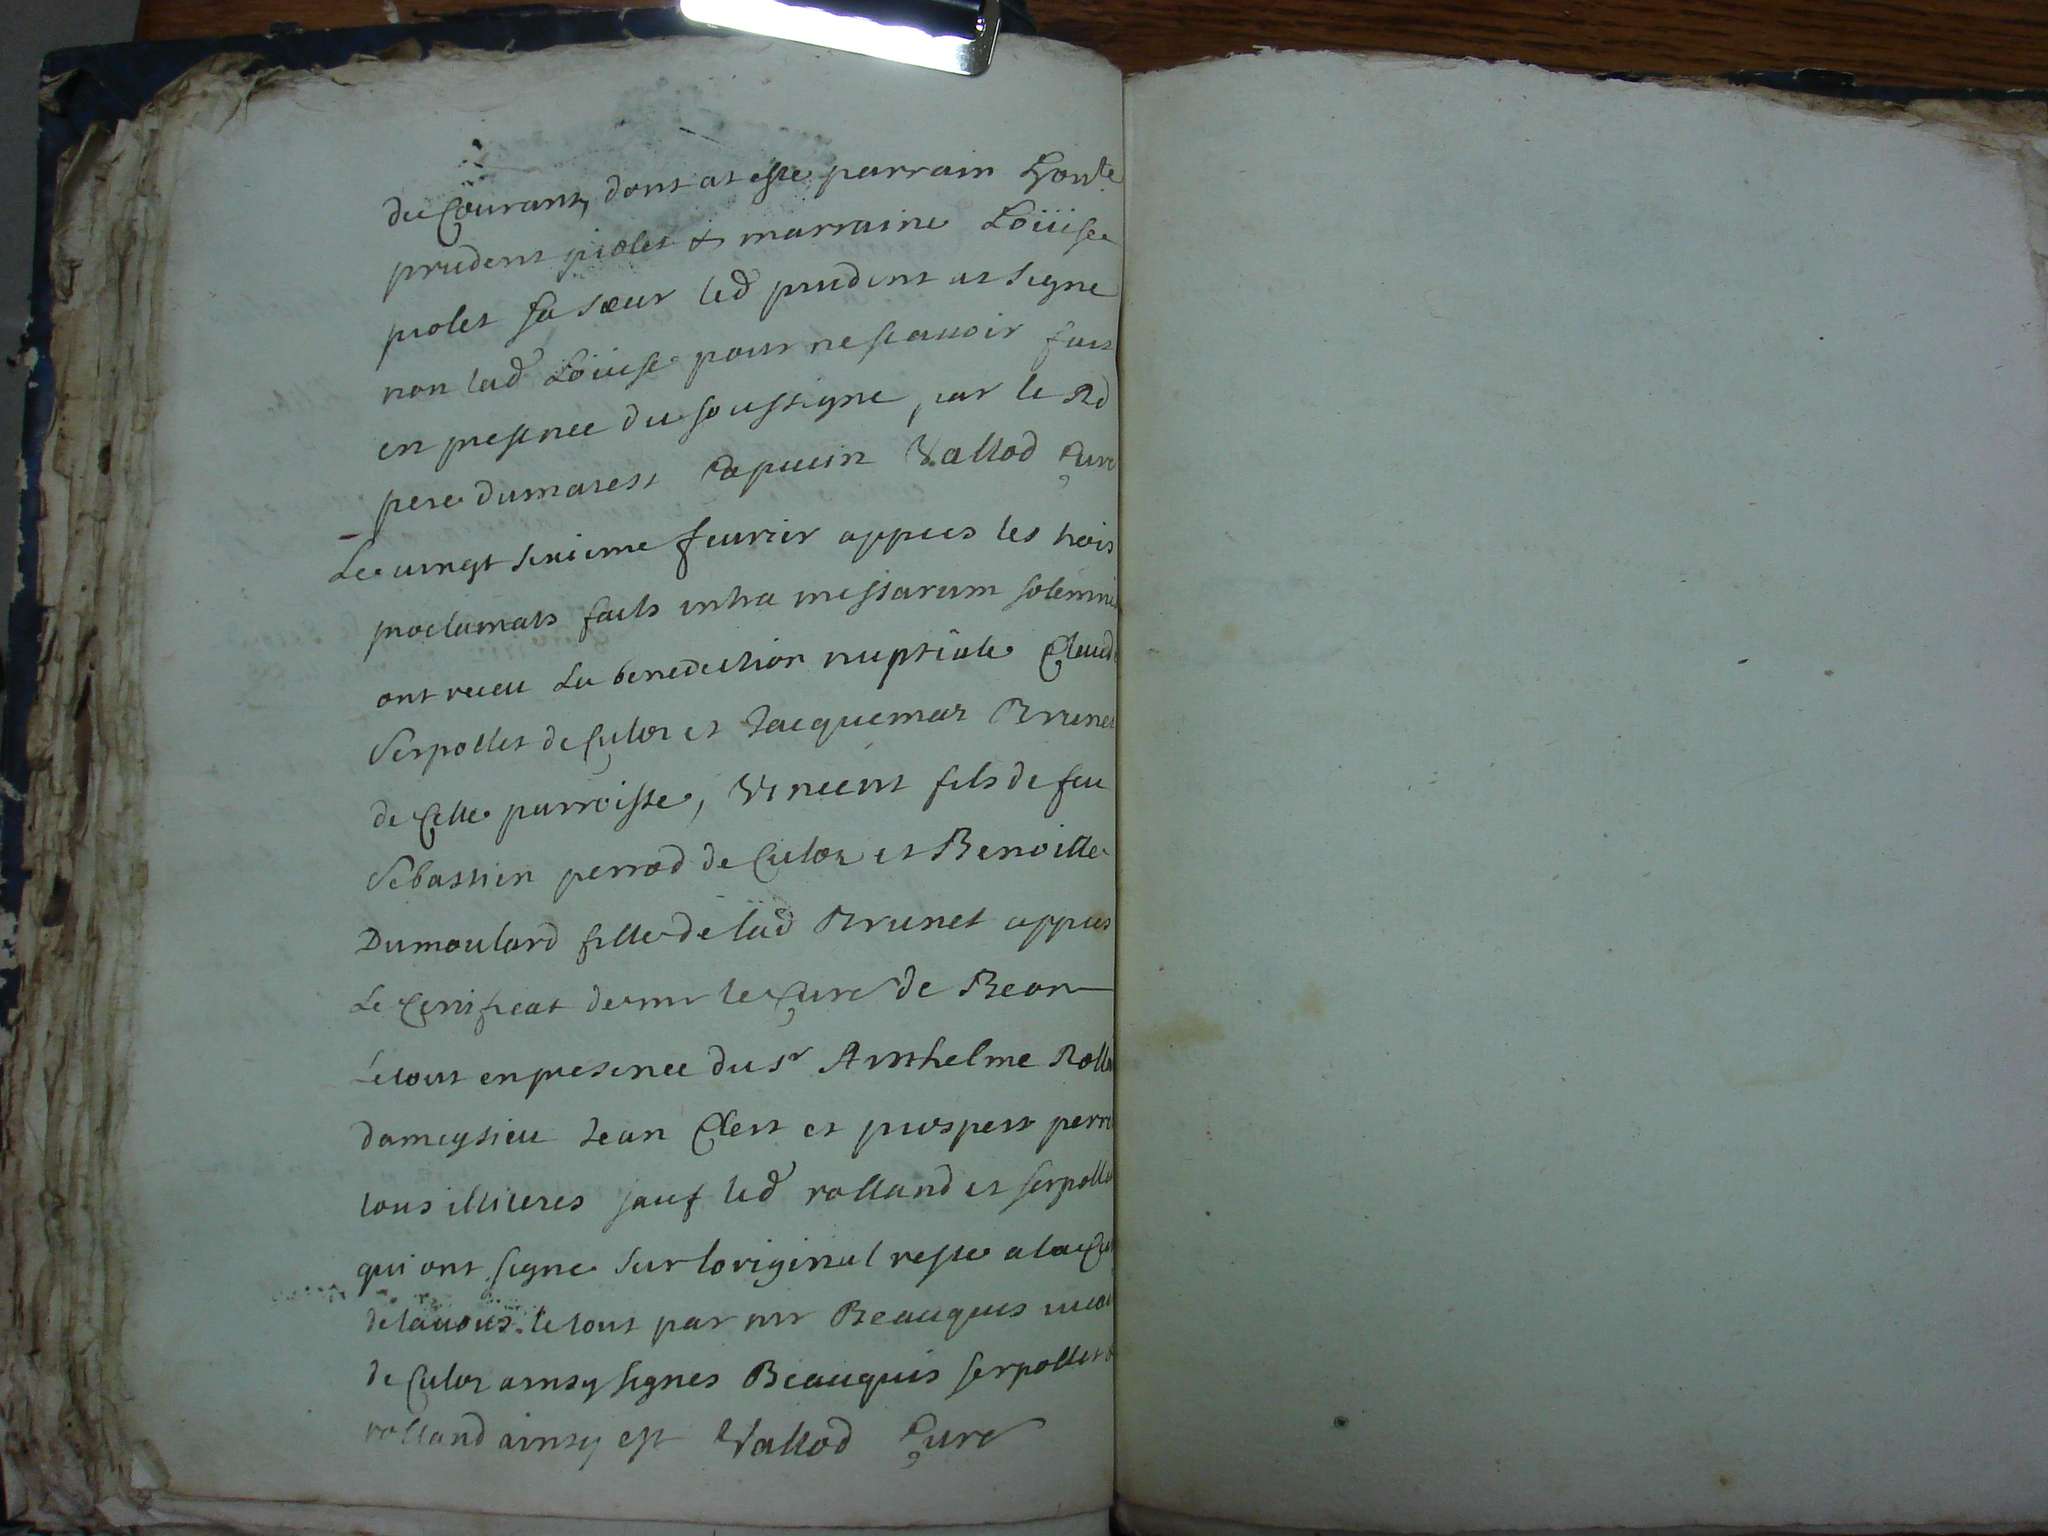 du Courant, dont at este parrain honte
prudent piolet & marraine Loüise
piolet sa sœur led prudent at signe
non lad Loüise pour ne scauoir fait
en presence du soussigne, par le Rd
pere dumarest Capucin Vallod Cure
Le vingt sixieme feurier appres les trois
proclamats faits intra missarum solemni
ont receu La benediction nuptiale Claude
Serpollet de Culoz et Jacquemaz Brunet
de Cette parroisse, Vincent fils de feu
Sebastien perrod de Culoz et Benoitte
Dumoulard fille de lad Brunet appres
Le Certificat de mr le Cure de Beon
Le tout en presence du sr Anthelme Rolla
dameysieu Jean Clert et prospert perro
tous illiteres sauf led rolland et serpollet
qui ont signe sur loriginal reste a la Cu
de lauours. le tout par mr Beauquis vicai
de Culoz ainsy signes Beauquis serpollet
rolland ainsy est Vallod Cure